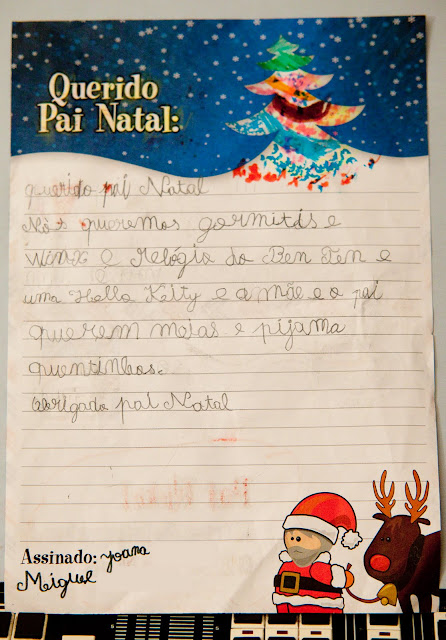 Querido
Pai Natal:
querido pai Natal
Nós queremos gormitis e
winx e relógio do Ben Ten e
uma Hello Kitty e a mãe e o pai
querem meias e pijama
quentinhos.
obrigado pai Natal
Assinado: Joana
Miguel